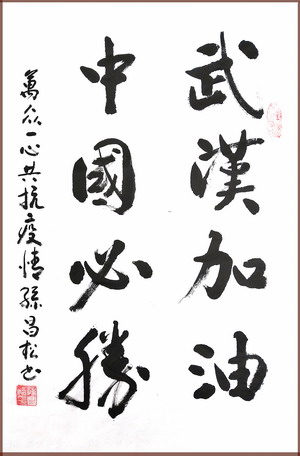 武漢加油
中國必勝
萬众一心共抗疫情孫昌松书